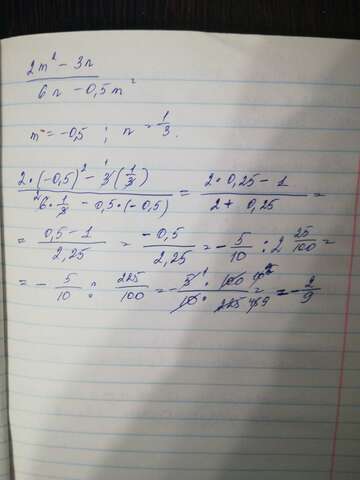 2m² - 3n
6n - 0,5m²
m = -0,5 ; n = 1/3.
2·(-0,5)² - 3(1/3) / 6·1/3 - 0,5·(-0,5) = 2·0,25 - 1 / 2 + 0,25 =
= 0,5 - 1 / 2,25 = -0,5 / 2,25 = - 5/10 : 2 25/100 =
= - 5/10 : 225/100 = - 5 · 100 / 10 · 225 = - 2/9